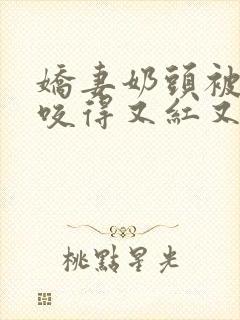 嬌妻奶頭被
咬得又紅又
桃點星光